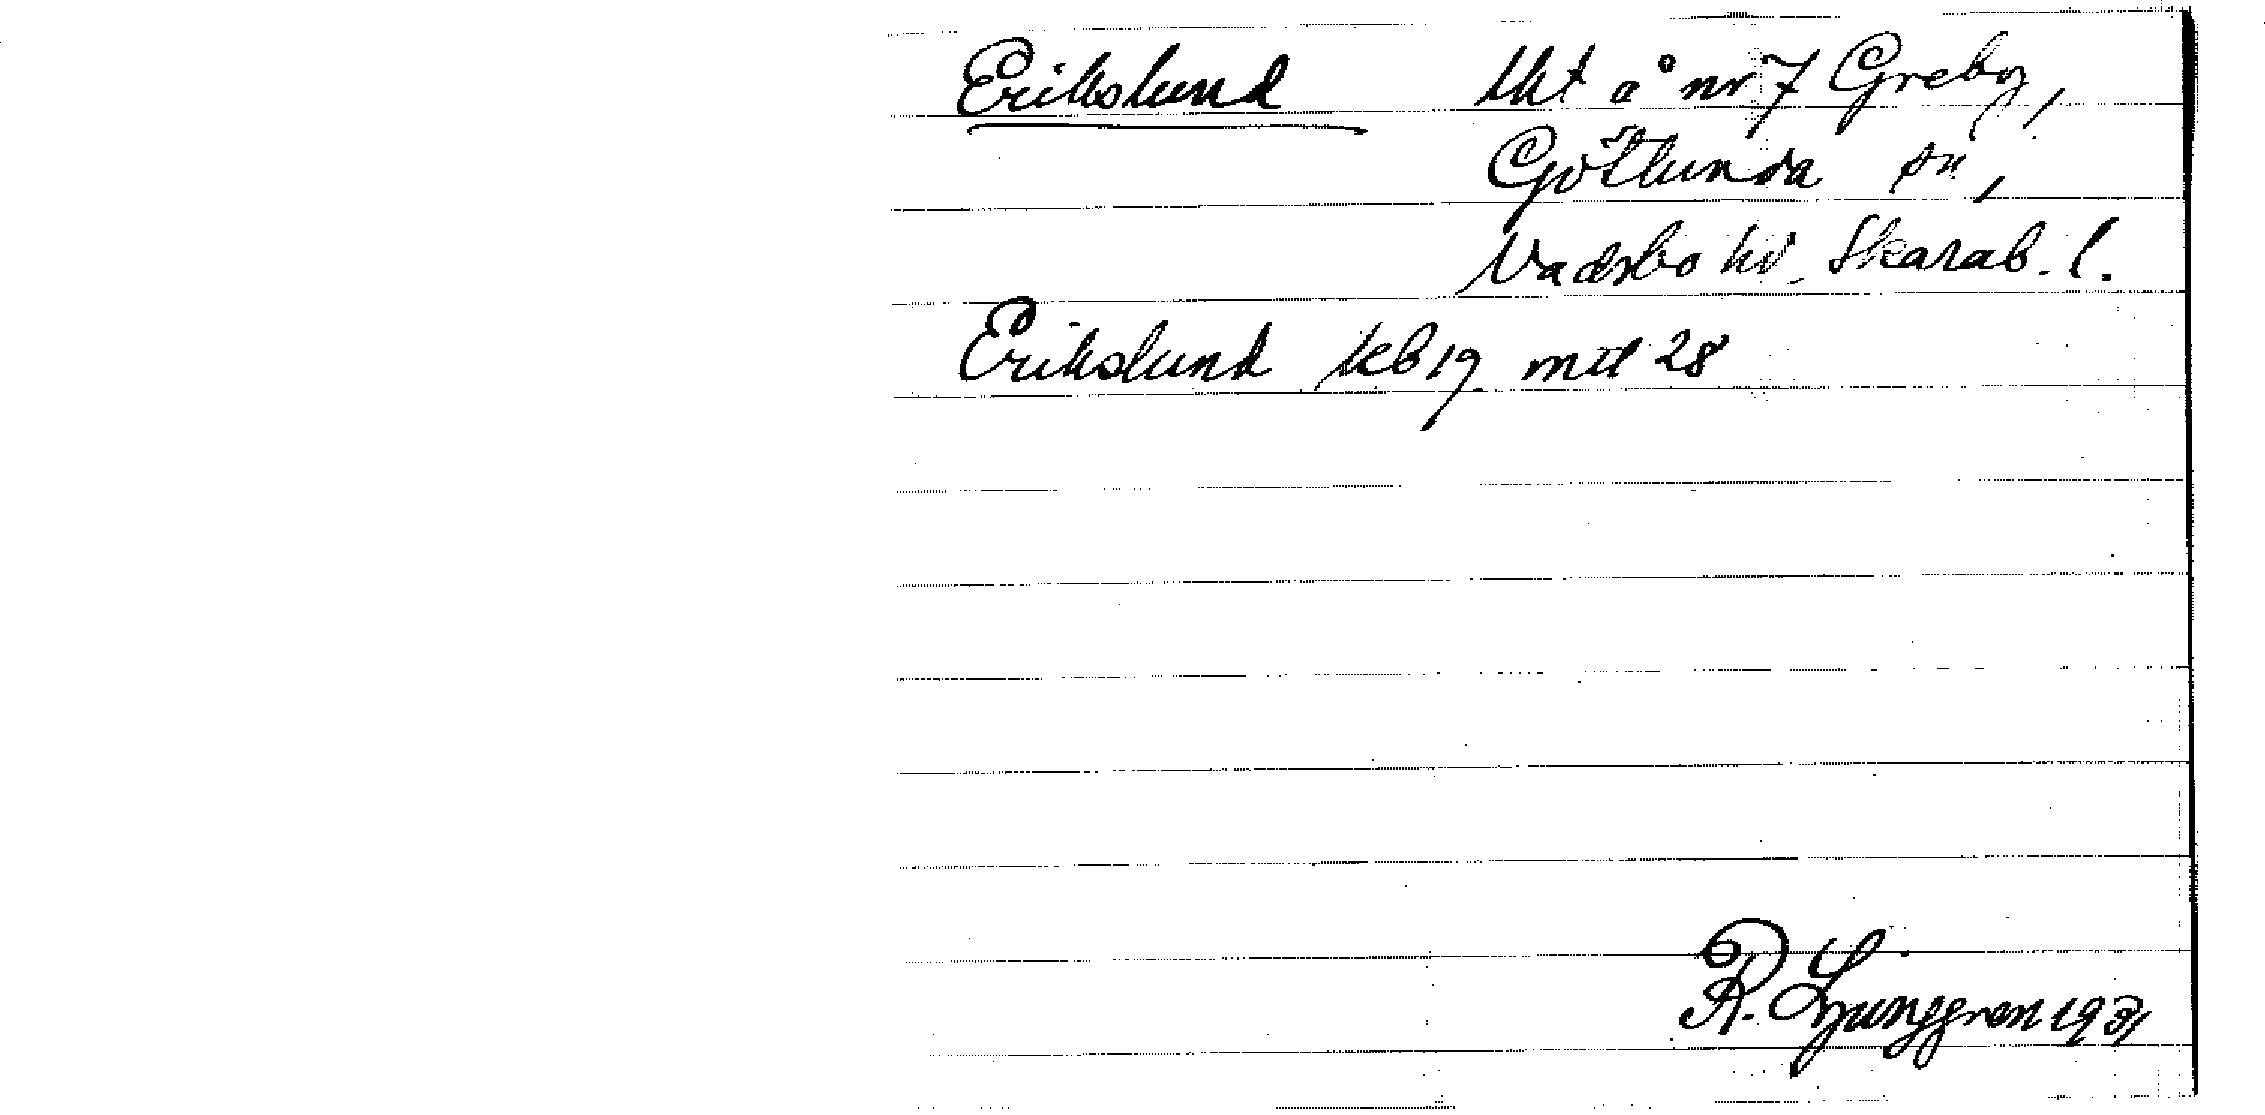 Erikslund tkt å nr 7 Greby,
Götlunda sn,
Vadsbo hd. Skarab. l.
Erikslund kb 19 mtl 28
R. Ljunggren 1931